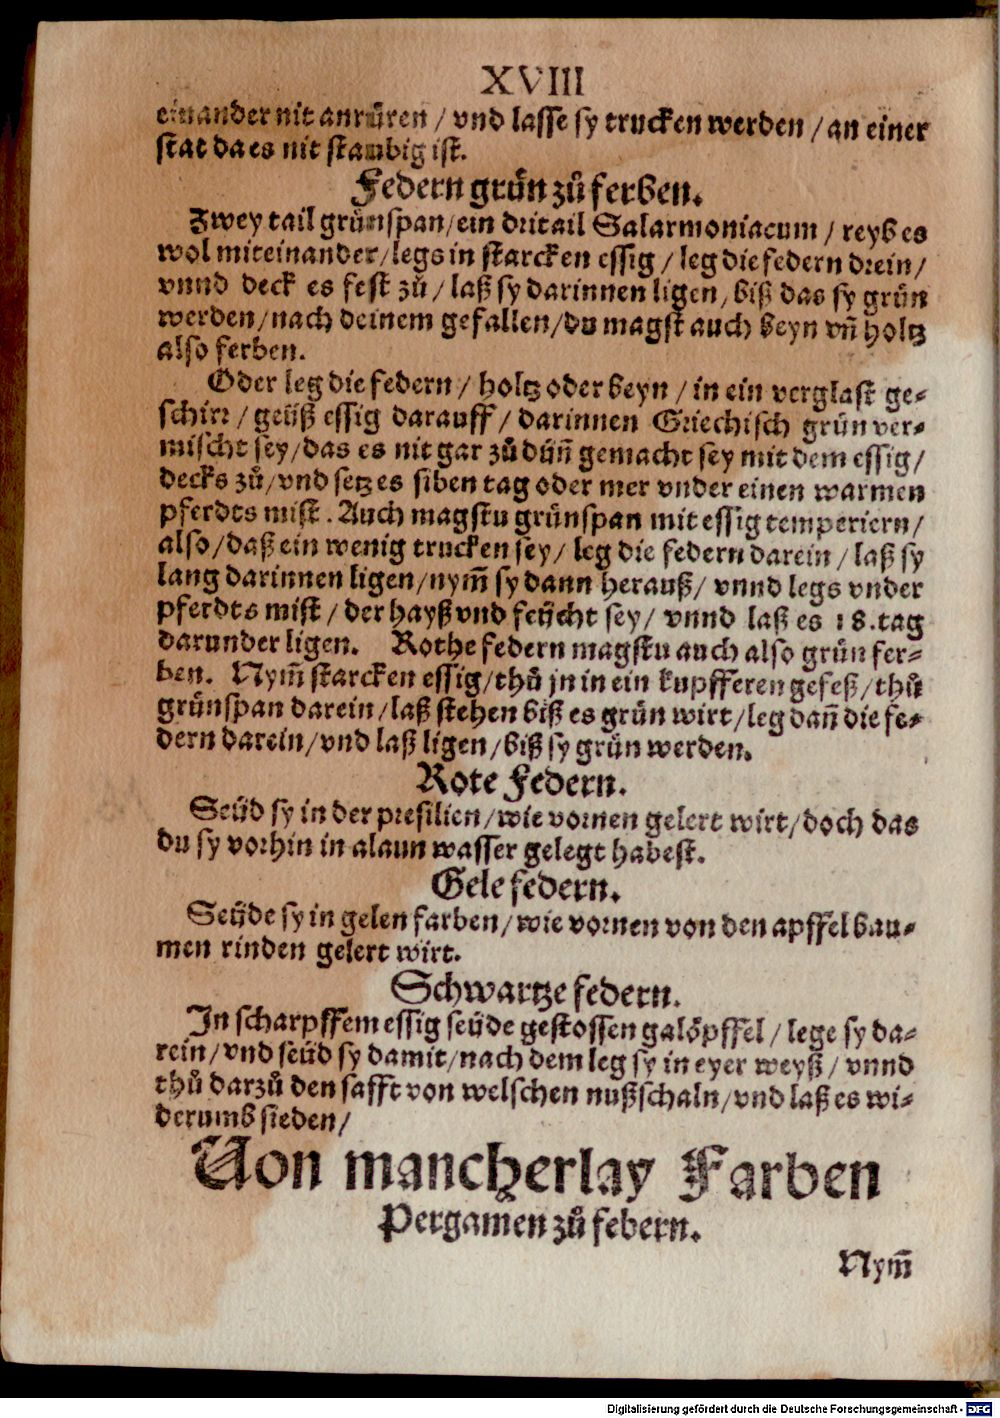 XVIII
einander nit anruͤren / vnd lasse sy trucken werden / an einer
stat da es nit staubig ist.
Federn gruͤn zuͦ ferben.
Zwey tail gruͤnspan / ein dritail Salarmoniacum / reyb es
wol miteinander / legs in starcken essig / leg die federn drein /
vnnd deck es fest zuͦ / laß sy darinnen ligen / biß das sy gruͤn
werden / nach deinem gefallen / du magst auch beyn vn̄ holtz
also ferben.
Oder leg die federn / holtz oder beyn / in ein verglast ge⸗
schirr / geüß essig darauff / darinnen Griechisch gruͤn ver⸗
mischt sey / das es nit gar zuͦ dün̄ gemacht sey mit dem essig /
decks zuͦ / vnd setz es siben tag oder mer vnder einen warmen
pferdts mist. Auch magstu gruͤnspan mit essig temperiern /
also / daß ein wenig trucken sey / leg die federn darein / laß sy
lang darinnen ligen / nym̄ sy dann herauß / vnnd legs vnder
pferdts mist / der hayß vnd feücht sey / vnnd laß es 18. tag
darunder ligen. Rothe federn magstu auch also gruͤn fer⸗
ben. Nym̄ starcken essig / thuͦ jn in ein kupfferen gefeß / thuͦ
gruͤnspan darein / laß stehen biß es gruͤn wirt / leg dan̄ die fe⸗
dern darein / vnd laß ligen / biß sy gruͤn werden.
Rote Federn.
Seüd sy in der presilien / wie vornen gelert wirt / doch das
du sy vorhin in alaun wasser gelegt habest.
Gele federn.
Seüde sy in gelen farben / wie vornen von den apffel bau⸗
men rinden gelert wirt.
Schwartze federn.
In scharpffem essig seüde gestossen galöpffel / lege sy da⸗
rein / vnd seüd sy damit / nach dem leg sy in eyer weyß / vnnd
thuͦ darzuͦ den safft von welschen nußschaln / vnd laß es wi⸗
derumb sieden /
Von mancherlay Farben
Pergamen zuͦ febern.
Nym̄
Digitalisierung gefördert durch die Deutsche Forschungsgemeinschaft - DFG